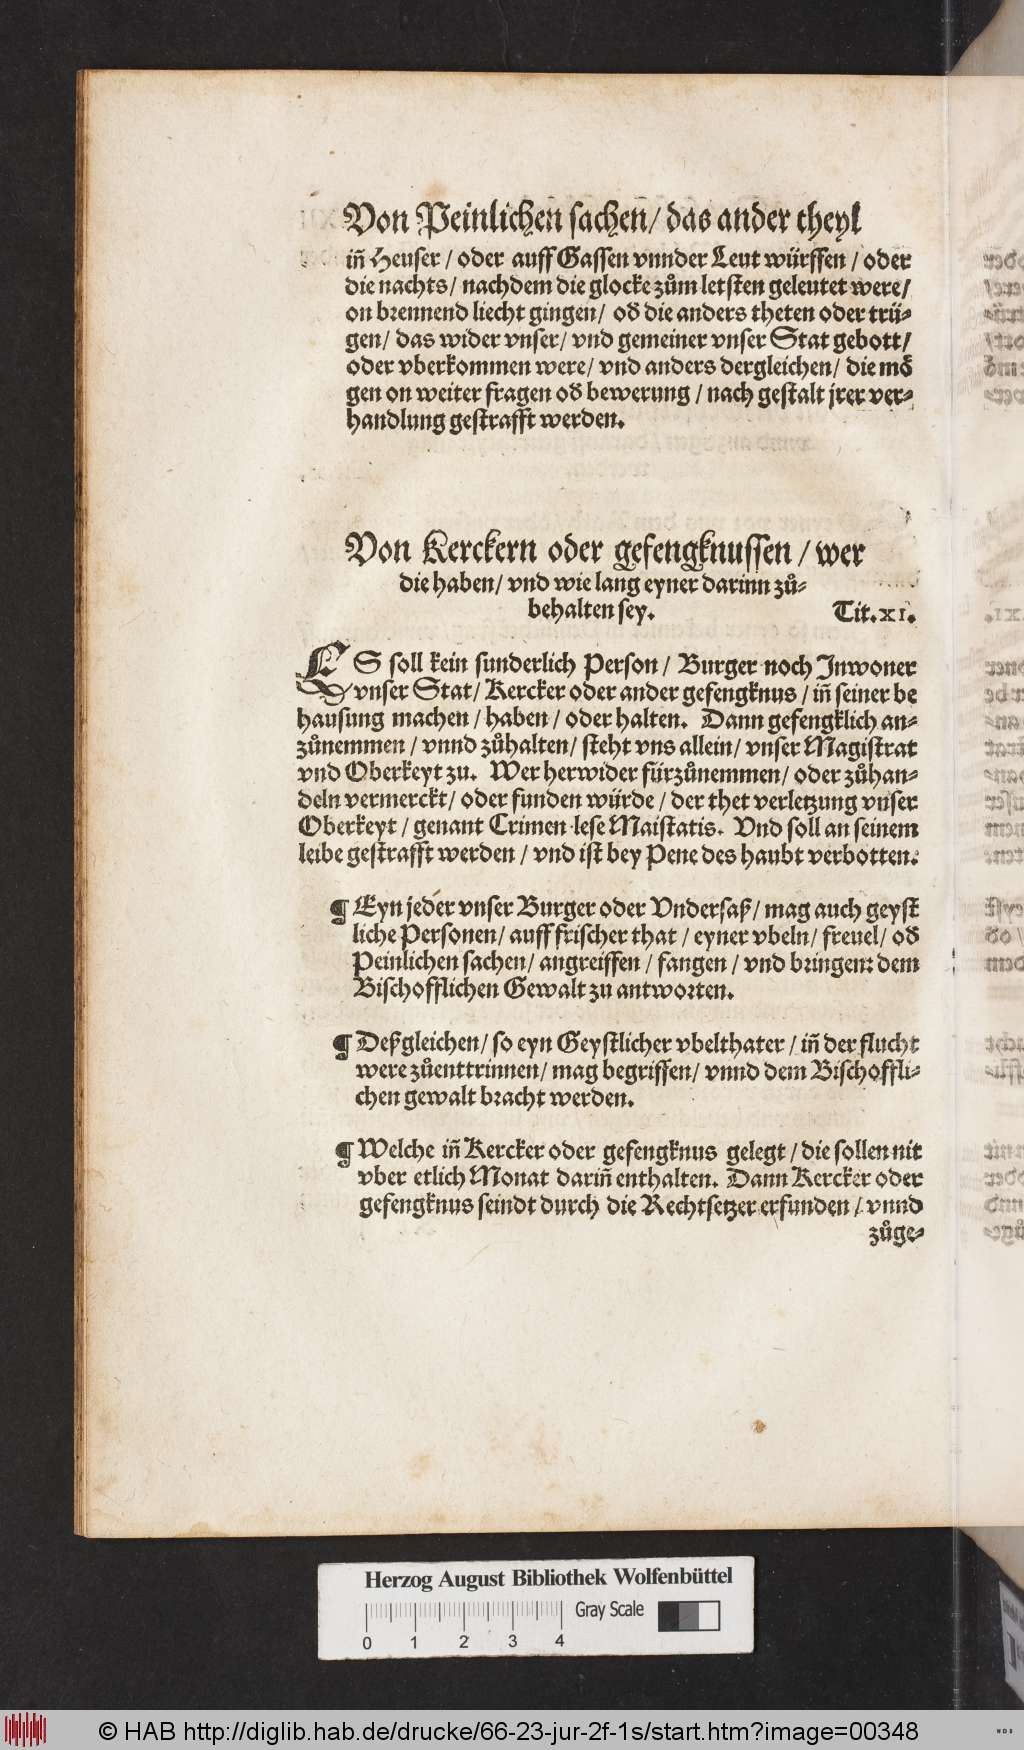 Von Peinlichen sachen / das ander theyl
iñ Heuser / oder auff Gassen vnnder Leut würffen / oder
die nachts / nachdem die glocke zům letsten geleutet were /
on brennend liecht gingen / oď die anders theten oder trü-
gen / das wider vnser / vnd gemeiner vnser Stat gebott /
oder vberkommen were / vnd anders dergleichen / die mö
gen on weiter fragen oď bewerung / nach gestalt jrer ver-
handlung gestrafft werden.
Von Kerckern oder gefengknussen / wer
die haben / vnd wie lang eyner darinn zů-
behalten sey. Tit. XI.
ES soll kein sunderlich Person / Burger noch Inwoner
vnser Stat / Kercker oder ander gefengknus / iñ seiner be
hausung machen / haben / oder halten. Dann gefengklich an-
zůnemmen / vnnd zůhalten / steht vns allein / vnser Magistrat
vnd Oberkeyt zu. Wer herwider fürzůnemmen / oder zůhan-
deln vermerckt / oder funden würde / der thet verletzung vnser
Oberkeyt / genant Crimen lese Maistatis. Vnd soll an seinem
leibe gestrafft werden / vnd ist bey Pene des haubt verbotten.
¶ Eyn jeder vnser Burger oder Vndersaß / mag auch geyst
liche Personen / auff frischer that / eyner vbeln / freuel / oď
Peinlichen sachen / angreiffen / fangen / vnd bringen: dem
Bischofflichen Gewalt zu antworten.
¶ Deßgleichen / so eyn Geystlicher vbelthater / iñ der flucht
were zůenttrinnen / mag begriffen / vnnd dem Bischoffli-
chen gewalt bracht werden.
¶ Welche iñ Kercker oder gefengknus gelegt / die sollen nit
vber etlich Monat dariñ enthalten. Dann Kercker oder
gefengknus seindt durch die Rechtsetzer erfunden / vnnd
zůge-
Herzog August Bibliothek Wolfenbüttel
Gray Scale
0 1 2 3 4
© HAB http://diglib.hab.de/drucke/66-23-jur-2f-1s/start.htm?image=00348